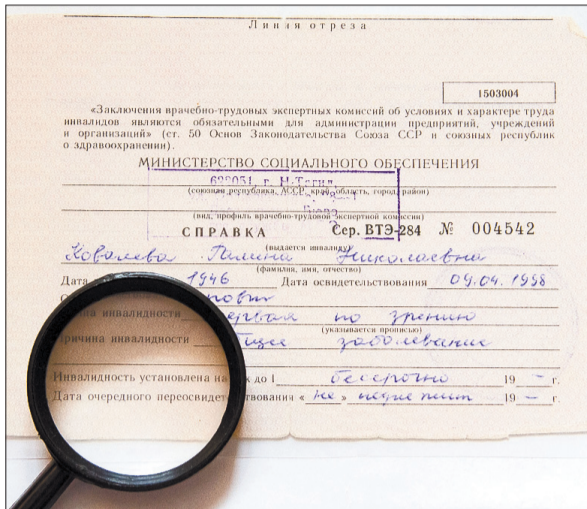 Линия отреза
1503004
«Заключения врачебно-трудовых экспертных комиссий об условиях и характере труда
инвалидов являются обязательными для администрации предприятий, учреждений
и организаций» (ст. 50 Основ Законодательства Союза ССР и союзных республик
о здравоохранении).
МИНИСТЕРСТВО СОЦИАЛЬНОГО ОБЕСПЕЧЕНИЯ
г. Н-Тагил
(союзная республика, АССР, край, область, город, район)
(вид, профиль врачебно-трудовой экспертной комиссии)
СПРАВКА Сер. ВТЭ-284 № 004542
(выдается инвалиду)
Ковалева Галина Николаевна
(фамилия, имя, отчество)
Дата 1946 Дата освидетельствования 09.04.1998
инвалидности первая по зрению
(указывается прописью)
ричина инвалидности Общее заболевание
Инвалидность установлена на к до 1 бессрочно 19 – г.
Дата очередного переосвидетельствования « не » подлежит 19 – г.